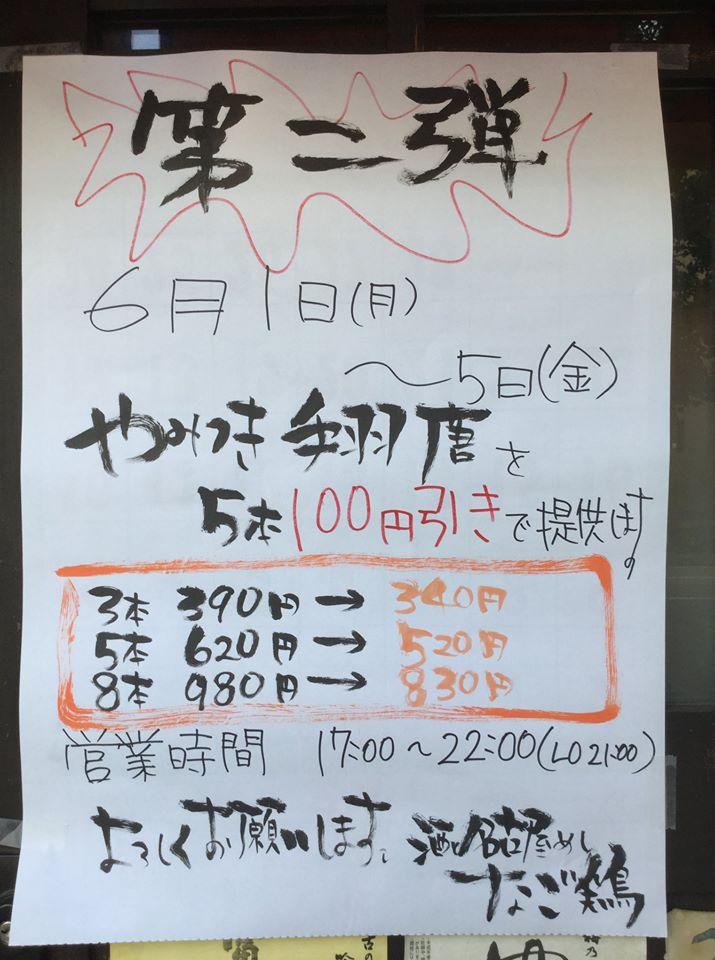 第二弾
6月1日(月)
〜5日(金)
やみつき翔唐を
5本100円引きで提供します
3本 390円→340円
5本 620円→520円
8本 980円→830円
営業時間 17:00〜22:00(LO 21:00)
よろしくお願いします。酒と名古屋めし
なご鶏